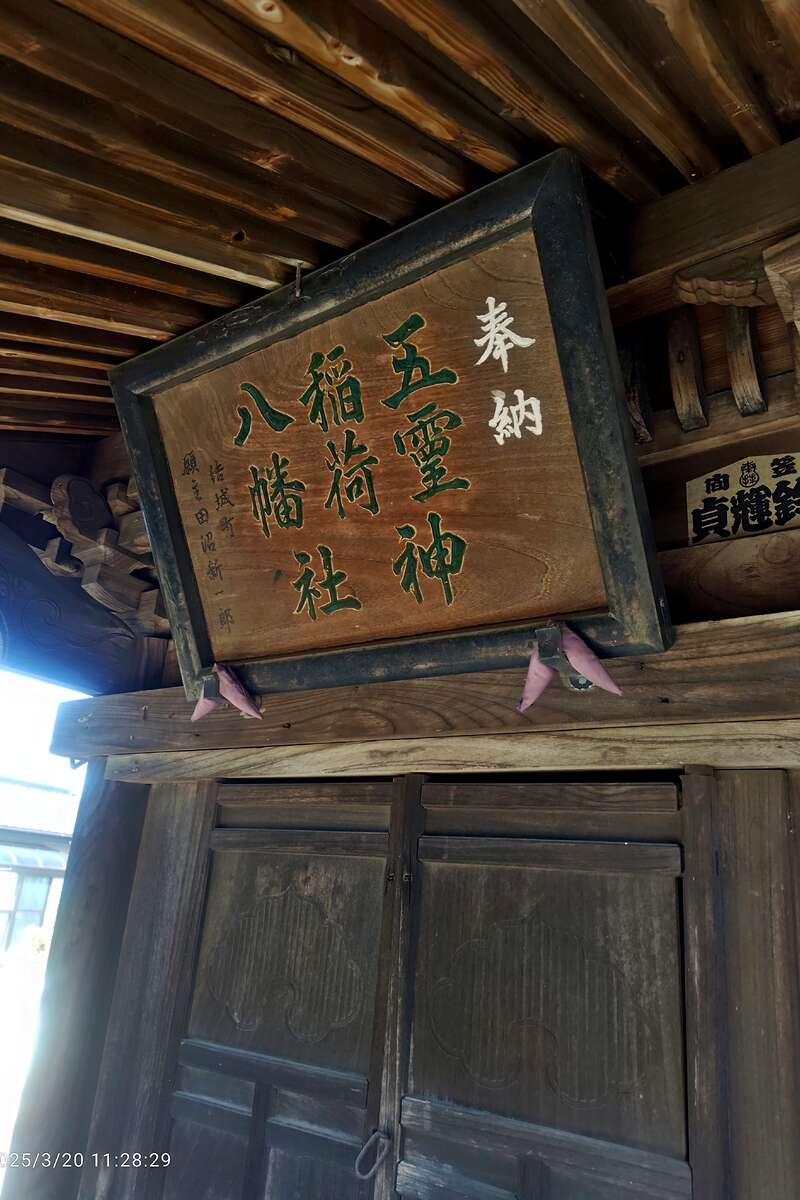 奉納
五霊神
稲荷
八幡 社
結城町
願主田沼新一郎
貞輝
025/3/20 11:28:29